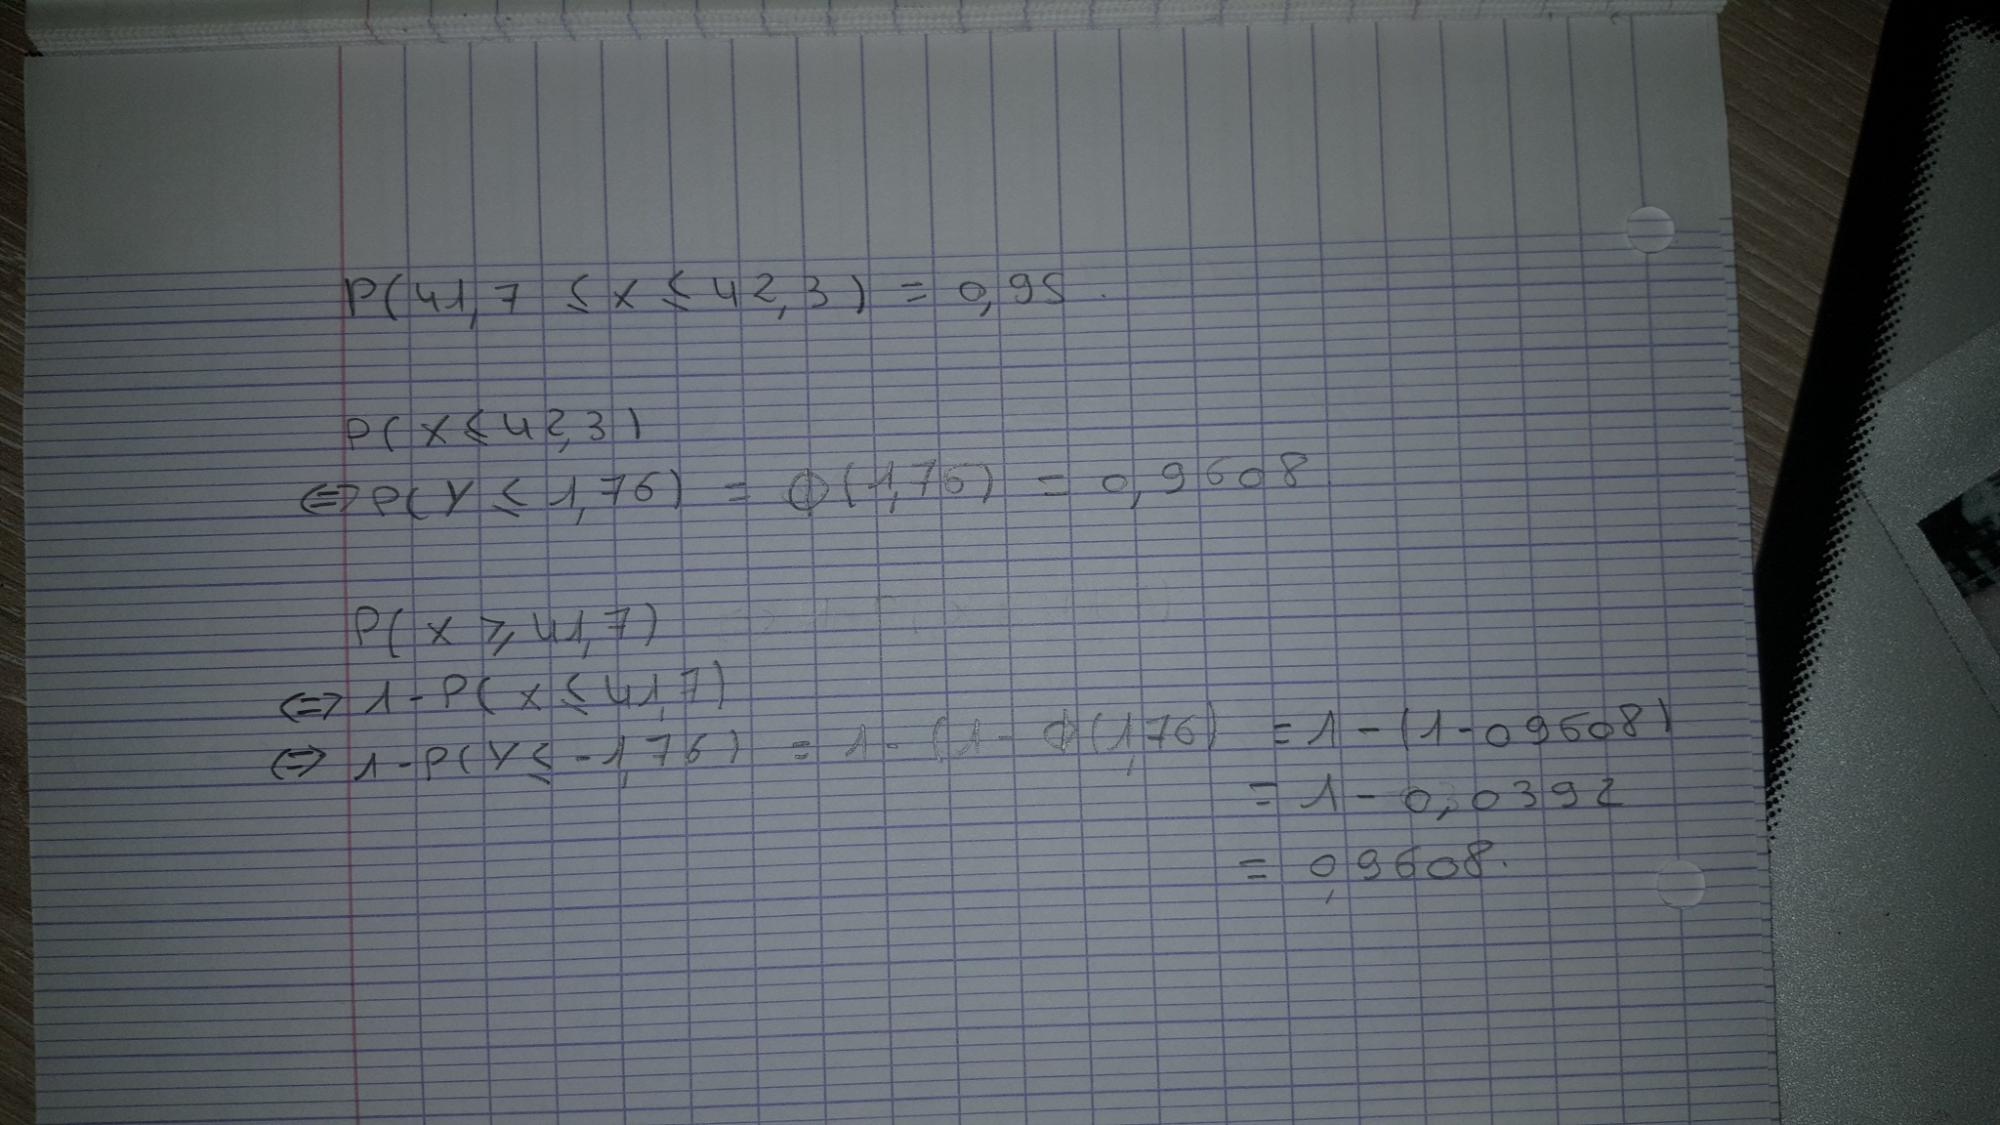 P(41,7 ≤ x ≤ 42,3) = 0,95.
P(x ≤ 42,3)
⇔ P(Y ≤ 1,76) = Φ(1,76) = 0,9608
P(x ≥ 41,7)
⇔ 1 - P(x ≤ 41,7)
⇔ 1 - P(Y ≤ -1,76) = 1 - (1 - Φ(1,76) = 1 - (1 - 09608)
= 1 - 0,0392
= 0,9608.